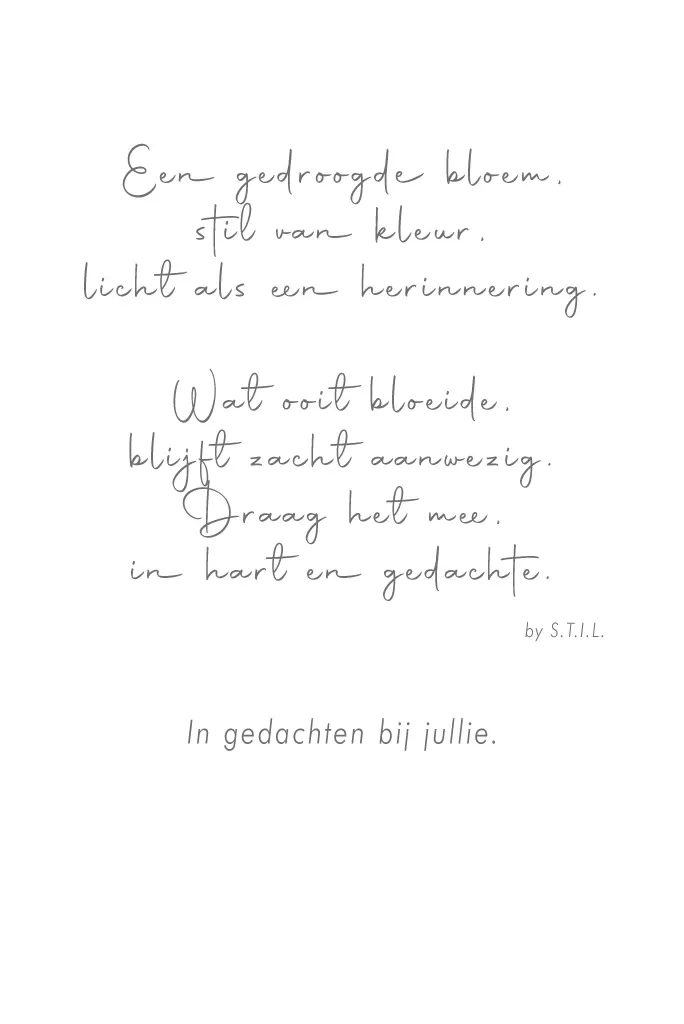 Een gedroogde bloem,
stil van kleur,
licht als een herinnering.
Wat ooit bloeide,
blijft zacht aanwezig.
Draag het mee,
in hart en gedachte.
by S.T.I.L.
In gedachten bij jullie.